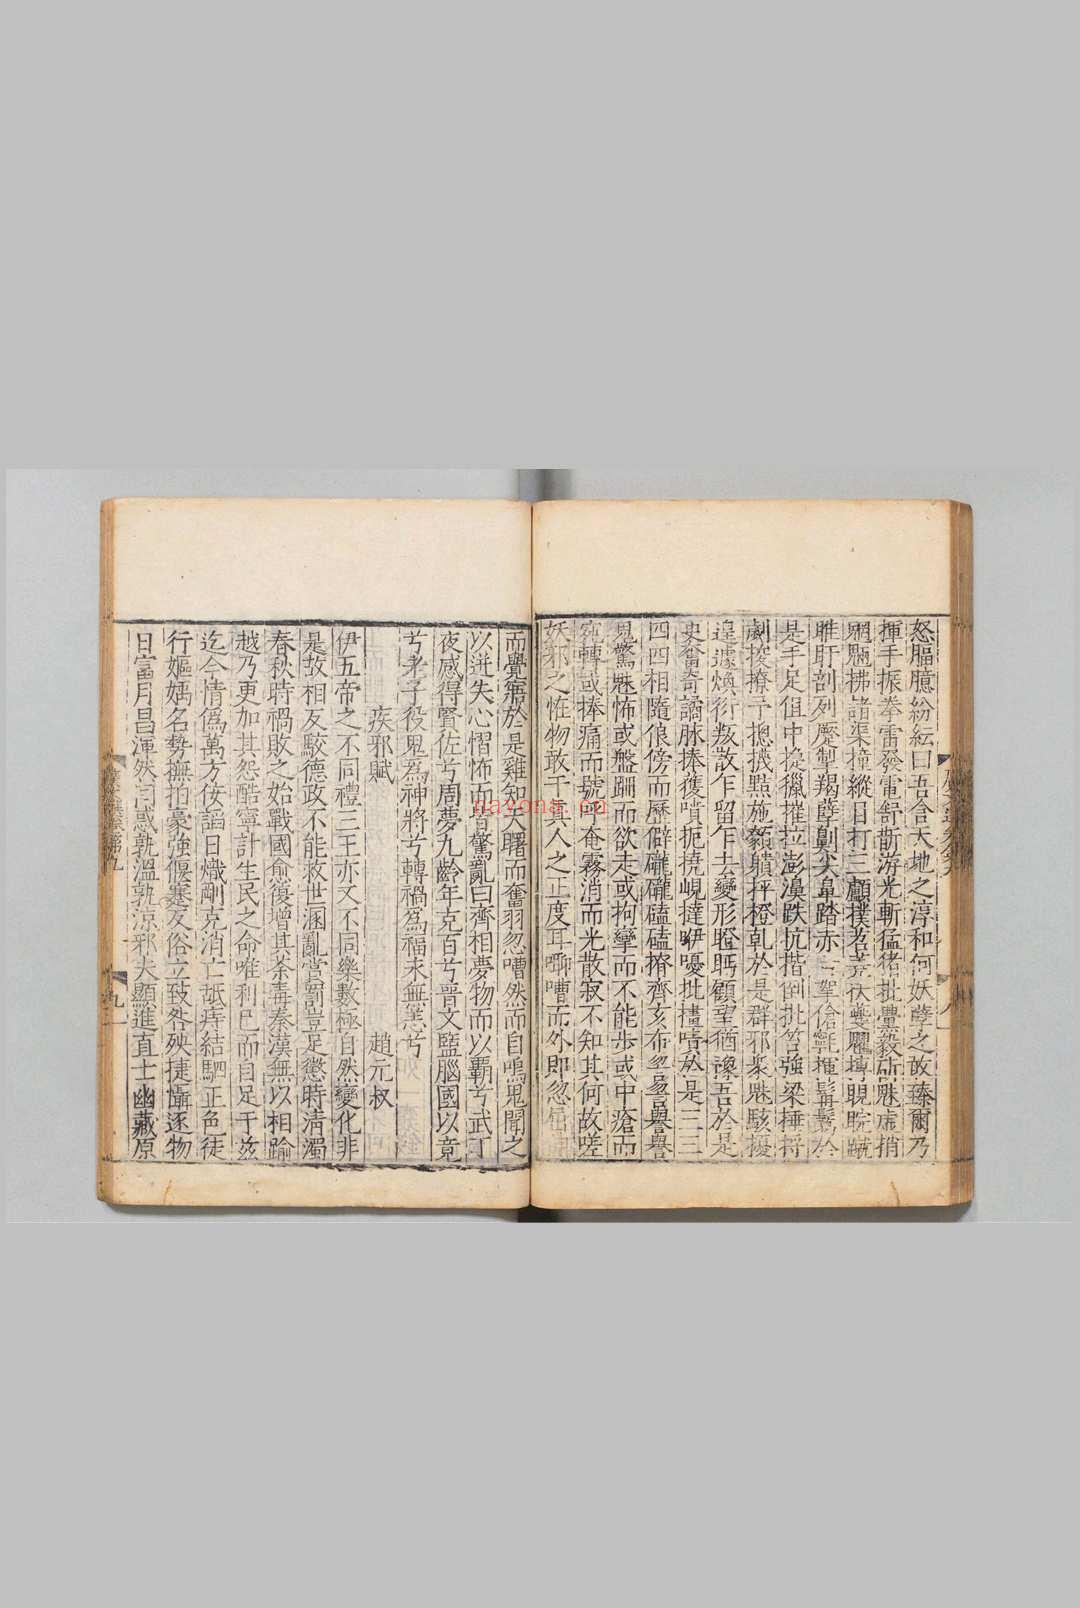 怒腷臆紛紜曰吾含天地之淳和何妖孽之敢臻爾乃
揮手振拳雷發電舒斮游光斬猛猪批㲄毅斫魅虛捎
魍魎拂諸渠撞縱目打三顱撲苕荛抶夔魖搏睍睆蹴
睢盱剖列蹷掣羯孽劓尖鼻踏赤舌挐傖髥揮髯鬣於
是手足俱中捷獵摧拉澎濞跌抗揩倒批笞強梁捶捋
劇撥撩予揔挽點施頯䫴抨橙軋於是群邪衆魅駭擾
遑遽煥衍叛散乍留乍去變形瞪眄顧望猶豫吾於是
更奮奇譎脉捧獲噴扼撓峴撻咿嚘批擿喷於是三三
四四相隨俍傍而歷僻礲礲磕磕擠齊亥布譽譽
鬼驚魅怖或盤跚而欲走或拘攣而不能步或中瘡而
宛轉或捧痛而號呼奄霧消而光散寂不知其何故嗟
妖邪之怪物敢干真人之正度耳唧嘈而外即忽屈申
而覺寤於是雞知天曙而奮羽忽嘈然而自鳴鬼聞之
以迸失心慴怖而皆驚亂曰齊桓夢物而以覇兮武丁
夜感得賢佐兮周夢九齡年克百兮晉文盬腦國以竟
兮老子役鬼爲神將兮轉禍爲福永無恙兮
疾邪賦 趙元叔
伊五帝之不同禮三王亦又不同樂數極自然變化非
是故相反駁德政不能救世溷亂賞罰豈足懲時清濁
春秋時禍敗之始戰國愈復增其荼毒秦漢無以相踰
越乃更加其怨酷寧計生民之命唯利己而自足于兹
迄今情僞萬方佞諂日熾剛克消亡舐痔結駟正色徒
行嫗媀名勢撫拍豪強偃蹇反俗立致咎殃捷懾逐物
日富月昌渾然同惑孰溫孰涼邪夫顯進直士幽藏原
navona.cn